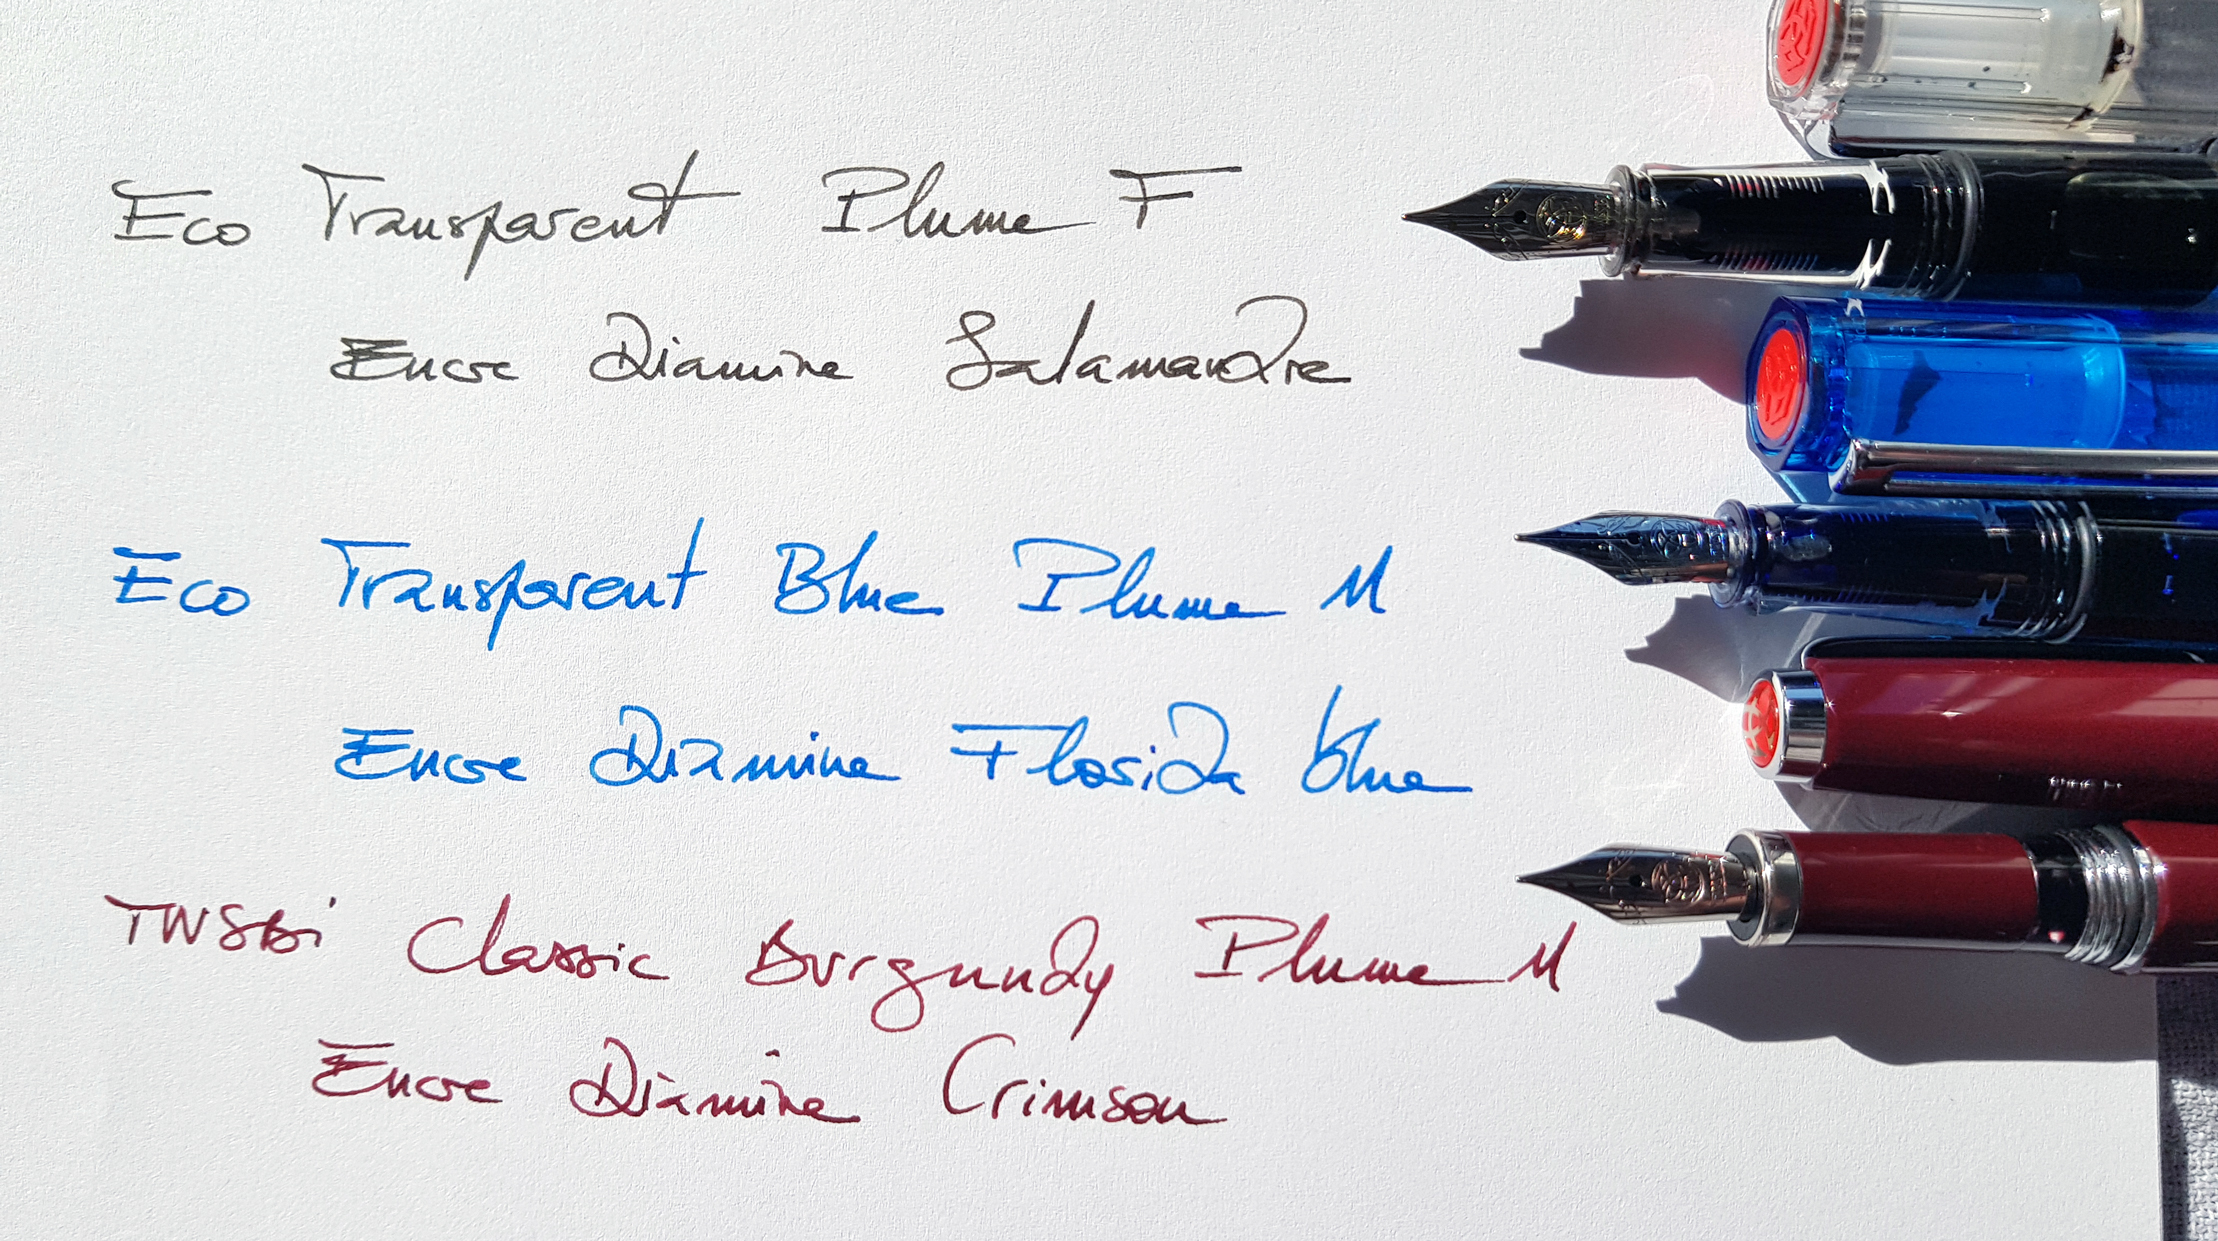 Eco Transparent Plume F
Encre Diamine Salamandre
Eco Transparent Blue Plume M
Encre Diamine Florida blue
TWSBi Classic Burgundy Plume M
Encre Diamine Crimson